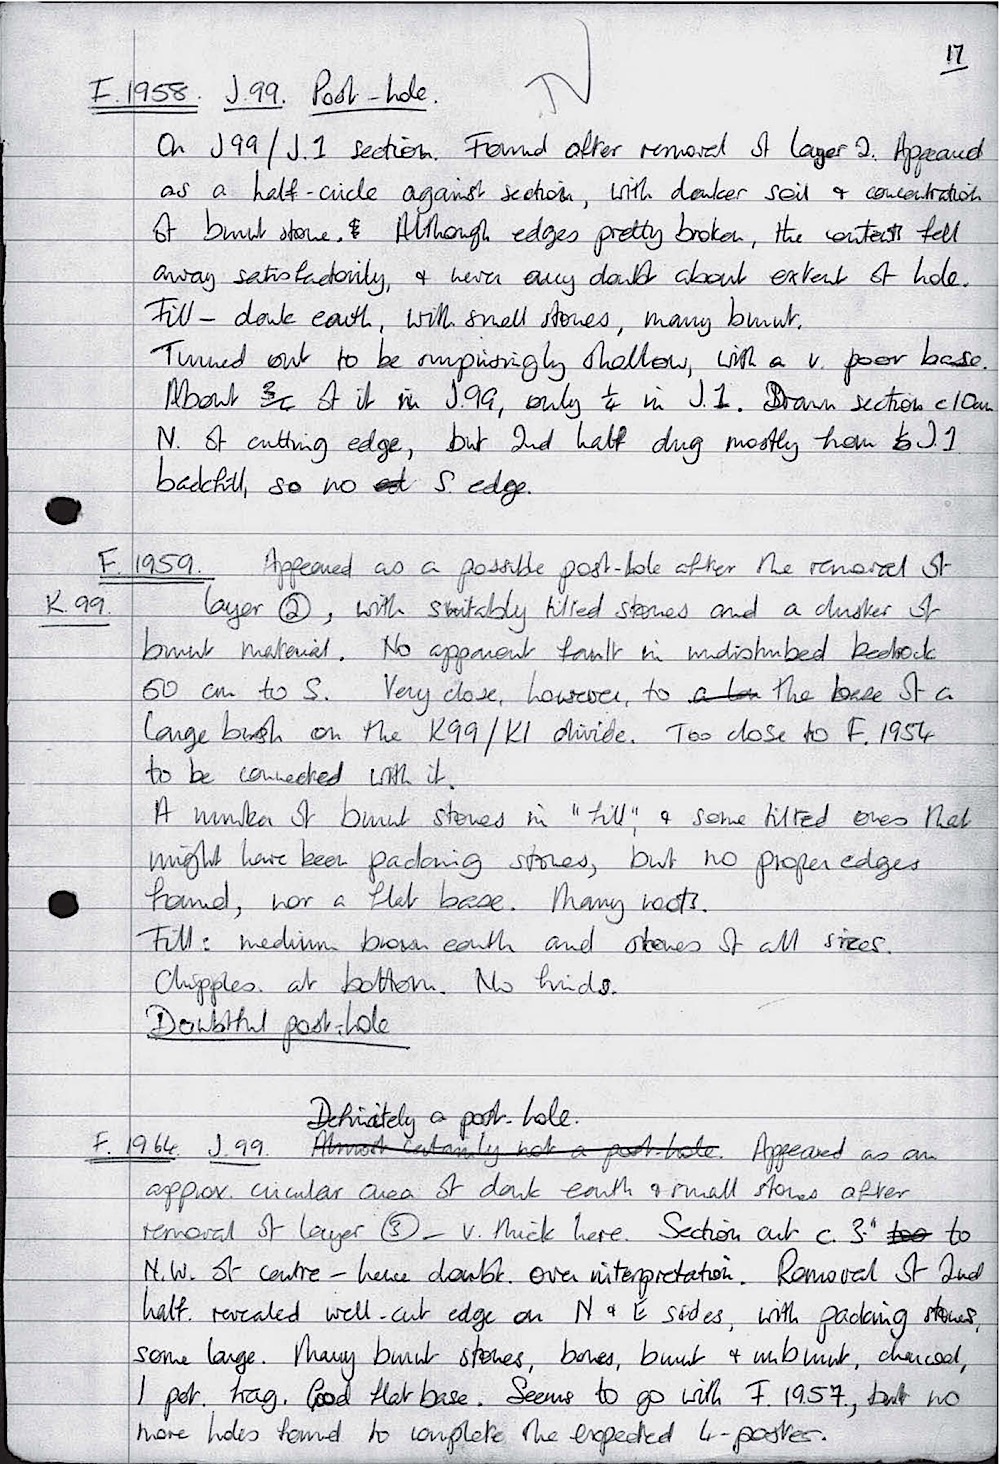 17
F.1958. J.99. Post-hole.
On J99/J.1 section. Found after removal of layer 2. Appeared
as a half-circle against section, with darker soil & concentration
of burnt stone. & Although edges pretty broken, the contents fell
away satisfactorily, & never any doubt about extent of hole.
Fill - dark earth, with small stones, many burnt.
Turned out to be surprisingly shallow, with a v. poor base.
About ¾ of it in J.99, only ¼ in J.1. Drawn section c10cm
N. of cutting edge, but 2nd half dug mostly from J.1
backfill, so no S. edge.
F.1959. Appeared as a possible post-hole after the removal of
K.99. layer ②, with suitably tilted stones and a cluster of
burnt material. No apparent fault in undisturbed bedrock
60 cm to S. Very close, however, to the base of a
large bush on the K99/K1 divide. Too close to F.1954
to be connected with it.
A number of burnt stones in "fill", & some tilted ones that
might have been packing stones, but no proper edges
found, nor a flat base. Many roots.
Fill: medium brown earth and stones of all sizes.
Chipples. at bottom. No finds.
Doubtful post-hole
Definitely a post-hole.
F.1964. J.99. Almost certainly not a post-hole. Appeared as an
approx. circular area of dark earth & small stones after
removal of layer ③ - v. thick here. Section cut c. 3" too to
N.W. of centre - hence doubt. over interpretation. Removal of 2nd
half. revealed well-cut edge on N & E sides, with packing stones,
some large. Many burnt stones, bones, burnt & unburnt, charcoal,
1 pot. frag. Good flat base. Seems to go with F.1957., but no
more holes found to complete the expected 4-poster.